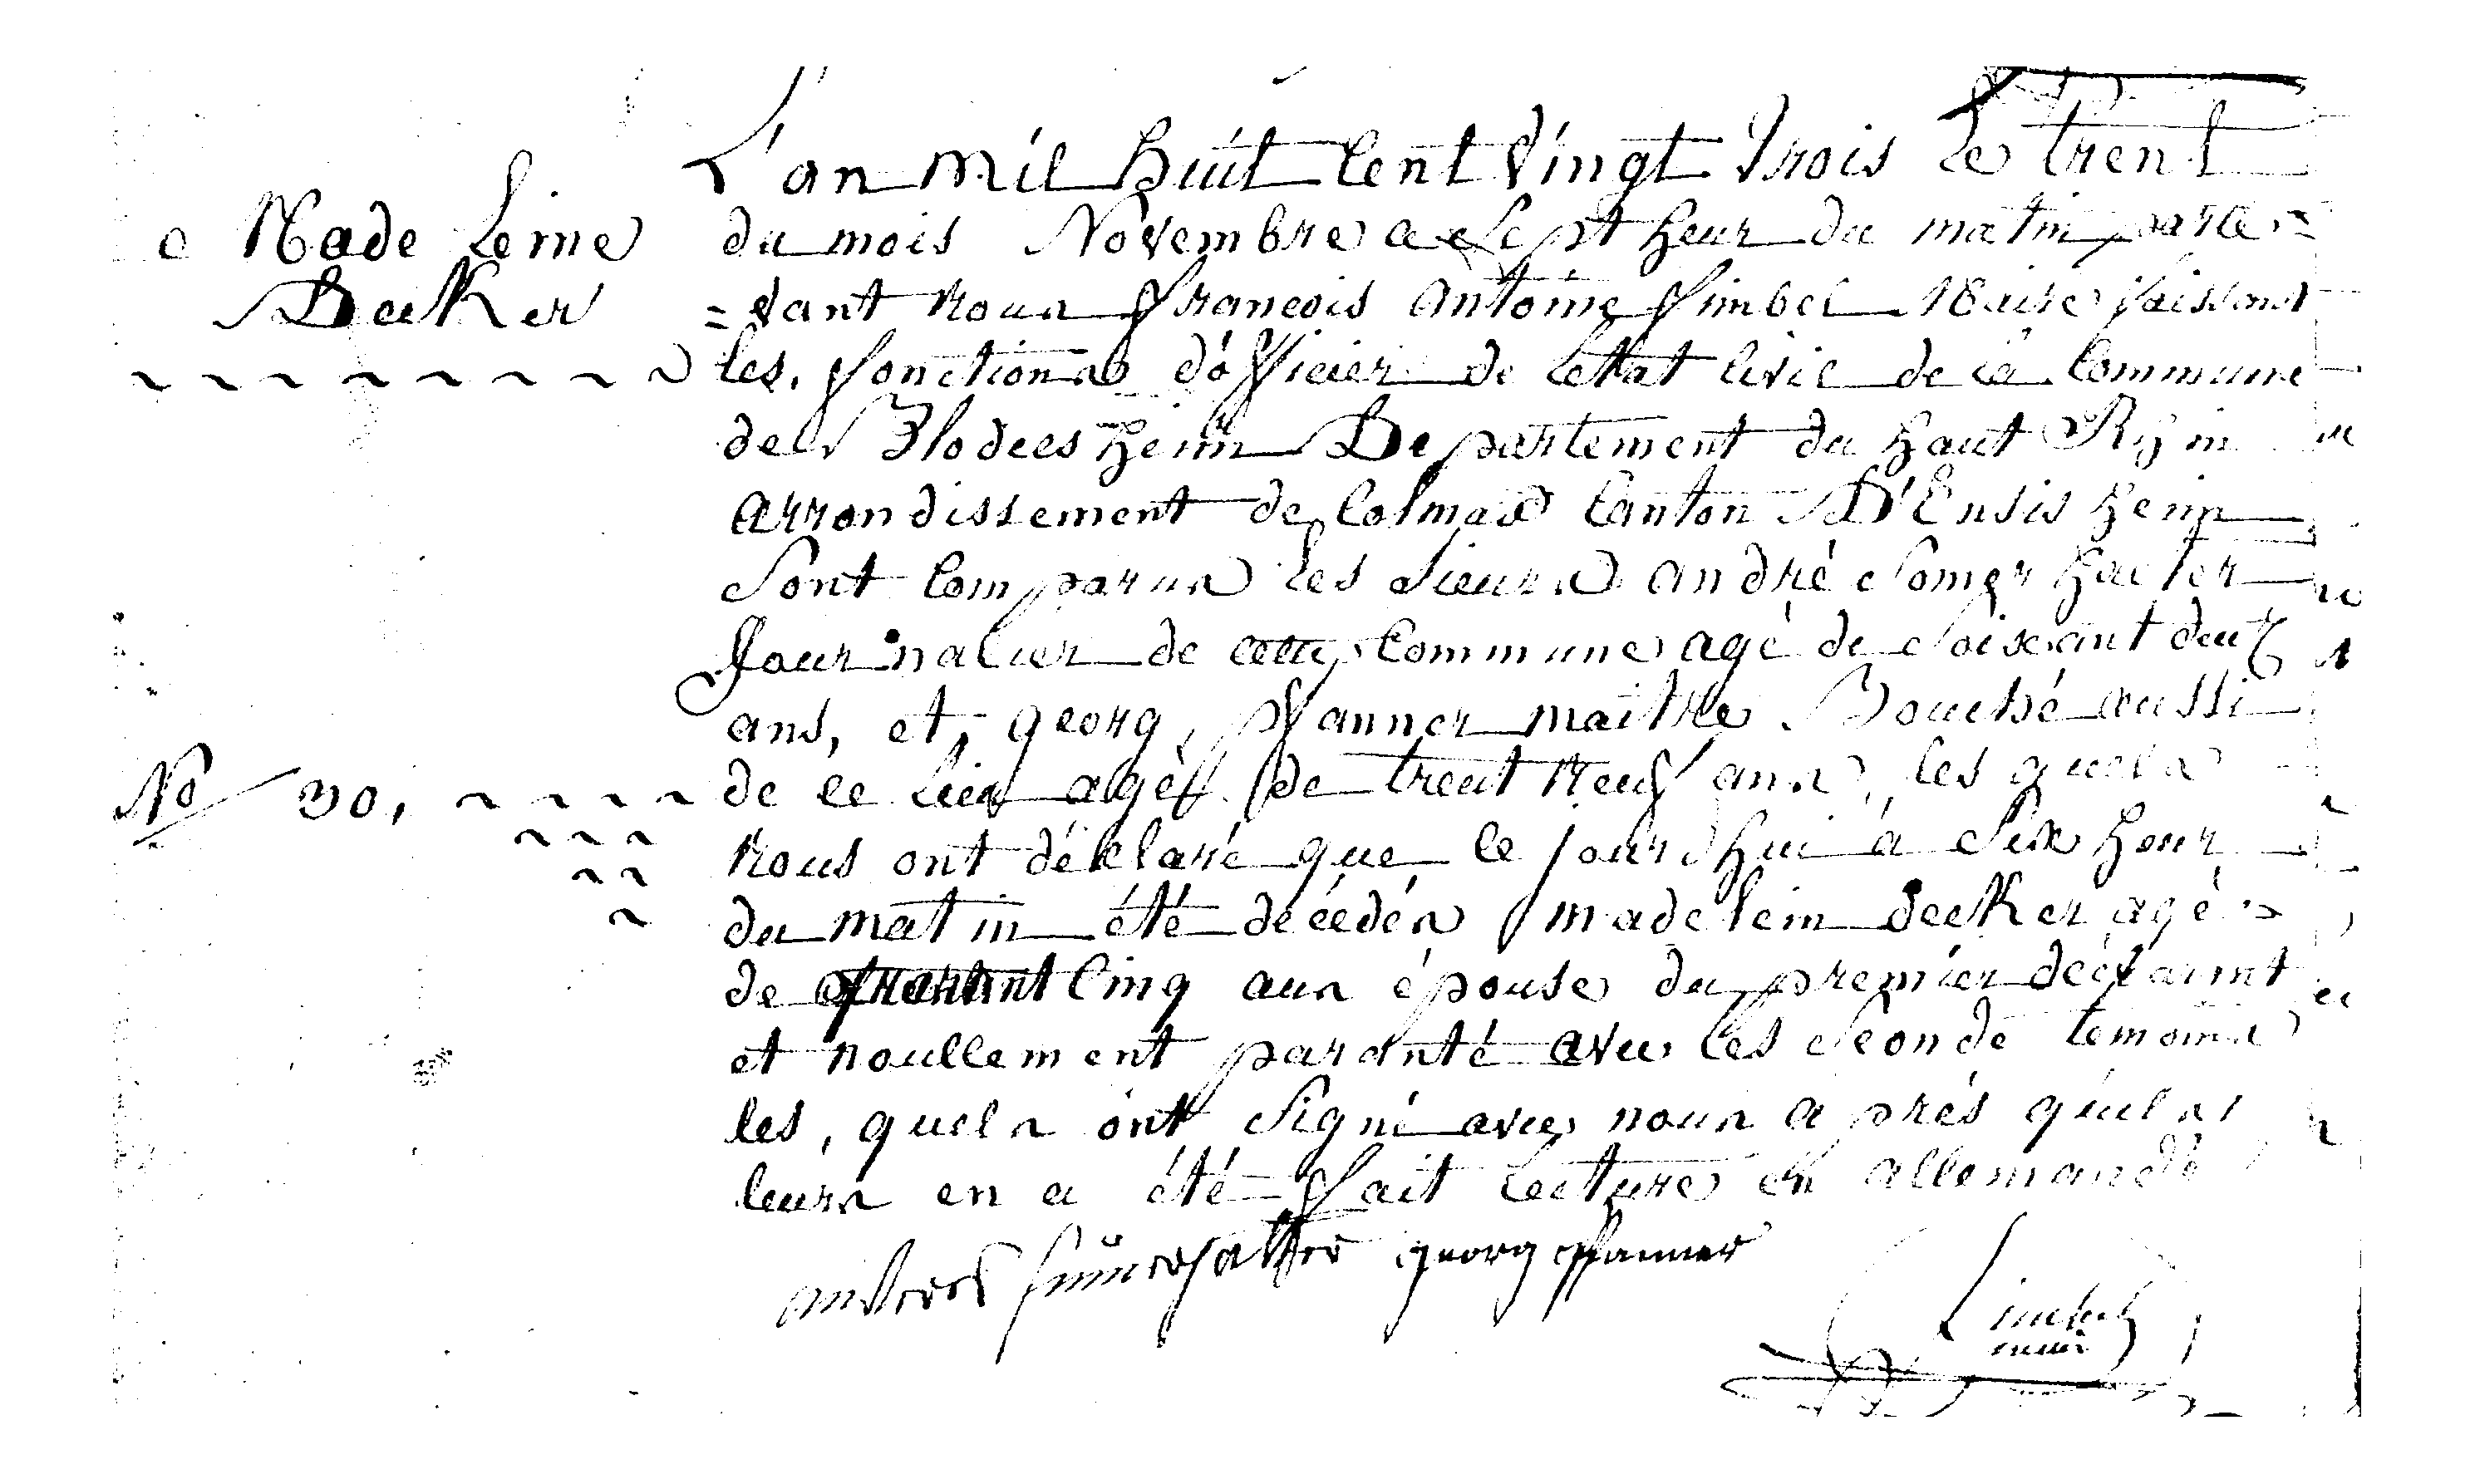 L'an mil huit Cent Vingt Trois Le trent
Made Leine
Decker
du mois Novembre a Sept heur du matin parte =
= vant nous francois antoine Simbel Maire faissant
les, fonctions d'officier de L'etat Civil de la Commune
de Blodelsheim Departement du haut Rhin
arrondissement de Colmar Canton D'Ensisheim
Sont Comparus les Sieurs andré Somerhalter
Journalier de cette Commune agé de Soixant deux
ans, et, georg, pfanner maitre Bouché aussi
No 30,
de ce lieu agé de trent neuf ans, les quels
nous ont déclaré que ce jourdhui a Six heur
du matin été décédés madelein decker agé =
de Cinq ans épouse du premier déclarint
et noullement paranté avec les Seconde temoins
les, quels ont Signé avec nous a prés qu'els
leurs en a été fait lecture en allemande
andreas sümerhalter georg pfanner
Simbel
maire